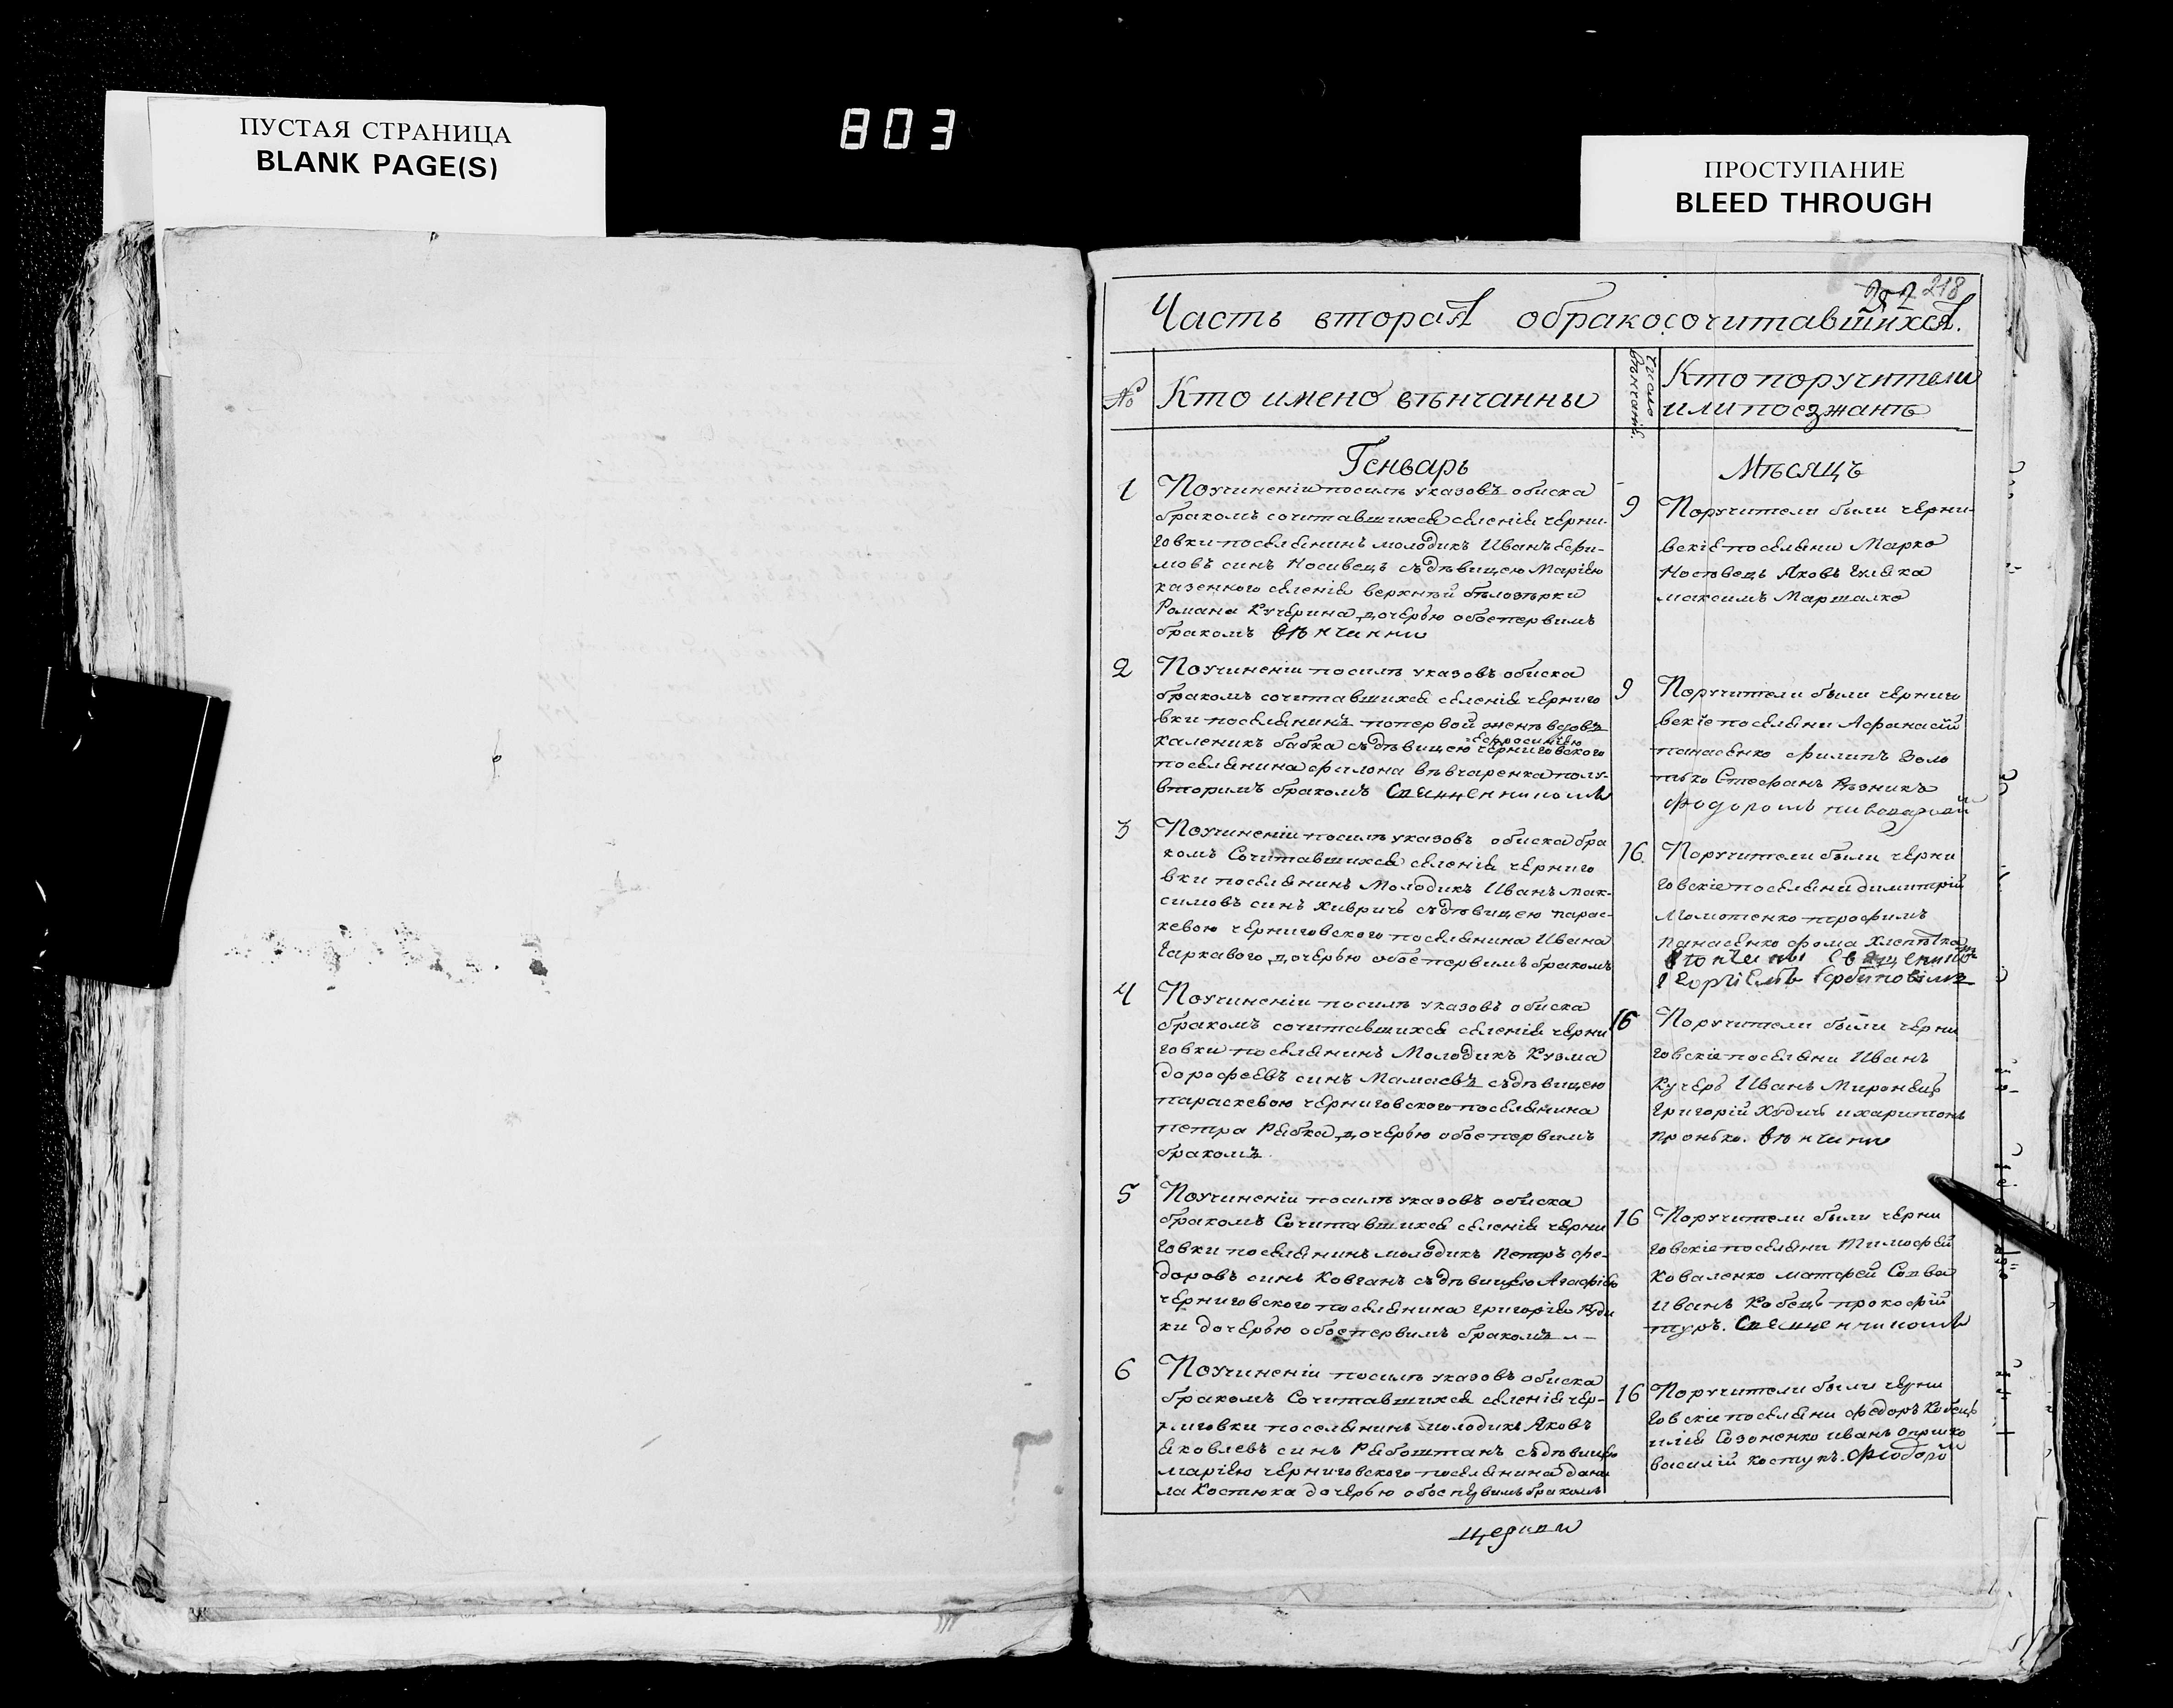 ПУСТАЯ СТРАНИЦА
BLANK PAGE(S)
803
ПРОСТУПАНИЕ
BLEED THROUGH
218
Часть вторая обракосочитавшихся.
№
Кто имено вѣнчанны
число
Кто поручители
или поезжанѣ
Генварь
Мѣсяцъ
1
Поучиненіи посилѣ указовъ обиска
бракомъ сочитавшихся селенія черни-
говки поселянинъ молодикъ Иванъ Ефи-
мовъ синъ Носивецъ съ дѣвицею Маріею
казенного селенія верхнѣй бѣлозѣрки
Романа Кучерина дочерью обое первимъ
бракомъ вѣнчанни
9
Поручители были черни-
вскіе поселяни Марко
Носѣвецъ Яковъ Гуляка
максимъ Маршалко
2
Поучиненіи посилѣ указовъ обиска
бракомъ сочитавшихся селенія черниго
вки поселянинъ попервой женѣ вдовъ
каленикъ бабка съ дѣвицею Ефросиніею черниговского
поселянина филона вѣвчаренка полу-
вторимъ бракомъ Священникомъ
9
Поручители были черниго
вскіе поселяни Афанасій
панасенко филипъ Золо
тько Стефанъ Рѣзникъ
3
Поучиненіи посилѣ указовъ обиска бра
комъ Сочитавшихся селенія черниго
вки поселянинъ Молодикъ Иванъ мак-
симовъ синъ Хивричь съ дѣвицею парас-
кевою черниговского поселянина Ивана
Гаркавого дочерью обое первимъ бракомъ
16
Поручители были черни
говскіе поселяни димитрій
Момотенко трофимъ
панасенко фома
4
Поучиненіи посилѣ указовъ обиска
бракомъ сочитавшихся селенія черни
говки поселянинъ Молодикъ Кузма
дорофеевъ синъ Мамаевъ съ дѣвицею
параскевою черниговского поселянина
петра Рябка дочерью обое первимъ
бракомъ
16
Поручители были черни
говскіе поселяни Иванъ
Кучеръ Иванъ Миронецъ
Григорій Худичъ и харитонъ
пронько. вѣнчани
5
Поучиненіи посилѣ указовъ обиска
бракомъ Сочитавшихся селенія черни
говки поселянинъ молодикъ Петръ фе-
доровъ синъ Ковганъ съ дѣвицею Агафіею
черниговского поселянина григорія Руди
ки дочерью обое первимъ бракомъ
16
Поручители были черни
говскіе поселяни Тимофей
Коваленко матфей Сопва
Иванъ Кобецъ прокофій
туръ. Священникомъ
6
Поучиненіи посилѣ указовъ обиска
бракомъ Сочитавшихся селенія чер-
ниговки поселянинъ молодикъ Яковъ
яковлевъ синъ Рябоштанъ съ дѣвицею
маріею черниговского поселянина дани
ла Костюка дочерью обое первимъ бракомъ
16
Поручители были черни
говскіе поселяни федоръ Кобецъ
илія Созоненко иванъ опришко
василій костукъ.